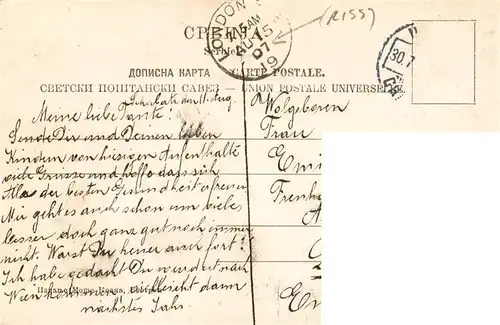 LONDON
AM
AU 15
07
19
(RISS)
СРБИЈА
Serbie
30.7
ДОПИСНА КАРТА — CARTE POSTALE.
СВЕТСКИ ПОШТАНСКИ САВЕЗ — UNION POSTALE UNIVERSE
den 11. Aug.
Meine liebe Tante!
Sende Dir und Deinen lieben
Kindern von hiesigen Aufenthalte
viele Grüsse und hoffe dass sich
Alle der besten Gesundheit erfreuen
Mir geht es auch schon um vieles
besser doch ganz gut noch immer
nicht. Warst Du heuer auch fort?
Ich habe gedacht Du würdest nach
Wien kommen vielleicht dann
nächstes Jahr
Wolgeboren
Frau
Emi